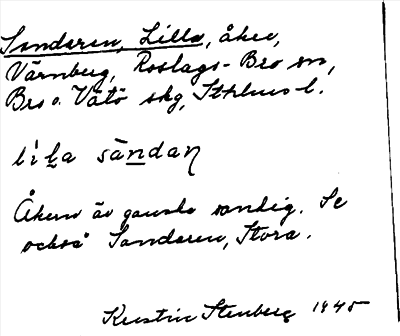 Sandaren, Lilla, åker,
Värnberg, Roslags-Bro sn,
Bro o. Vätö skg, Sthlms l.
lìl̠a sä̀ndaṇ
Åkern är ganska sandig. Se
också Sandaren, Stora.
Kerstin Stenberg 1945